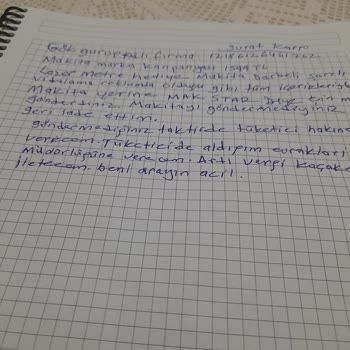 Sürat Kargo
firma 12186126461262
Makita marka kanpanyalı 1599 TL
Lazer metre hediye. Makita Darbeli şarzlı
vidalama resimde olduğu gibi tüm içerikleriyle
Makita yerine MAK STAR
gönderdiniz. Makitayı göndermediğiniz
geri iade ettim.
göndermediğiniz taktirde tüketici hakime
verecem. Tüketicide aldığım evrakları
Müdürlüğüne verecem. Artı vergi kaçakç
iletecem. beni arayın acil.